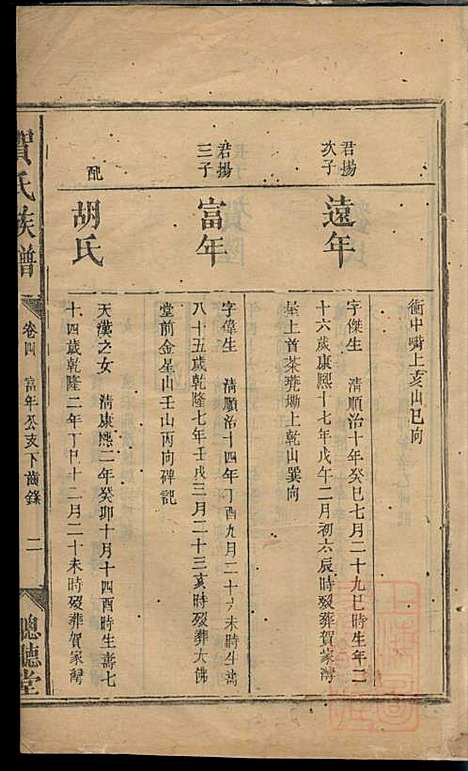 衝中嘴上亥山巳向
君揚
次子
遠年
字傑生 清順治十年癸巳七月二十九巳時生年二
十六歲康熙十七年戊午二月初六辰時歿葬賀家灣
屋上首茶蔸墈上乾山巽向
君揚
三子
富年
字偉生 清順治十四年丁酉九月二十 未時生壽
八十五歲乾隆七年壬戌三月二十三亥時歿葬大佛
堂前金星山壬山丙向碑記
配
胡氏
天漢之女 清康熙二年癸卯十月十四酉時生壽七
十四歲乾隆二年丁巳十二月二十未時歿葬賀家灣
賀氏族譜
卷四
富年公支下齒錄
二
聰聽堂